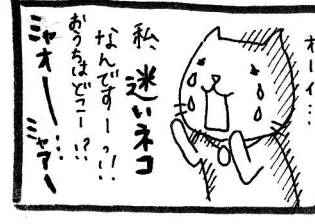 オーイ…
私、迷いネコ
なんですーっ!!
おうちはどこー!?
ミャオー…
ミャアー